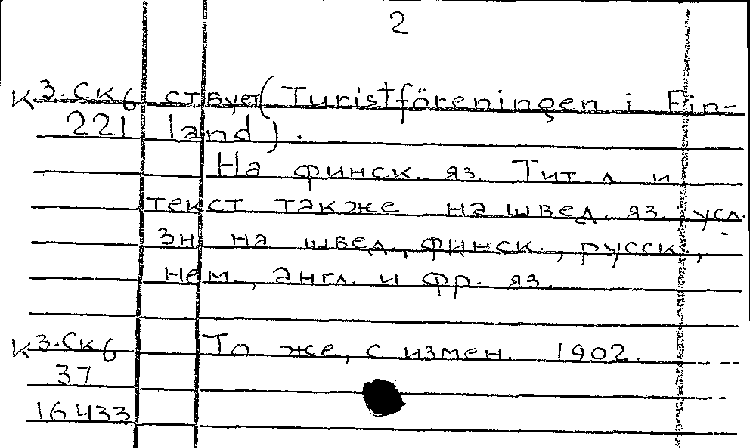 2
К 3-Ск6 ствует (Turistföreningen i Fin-
221 land).
На финск. яз. Тит. л. и
текст также на швед. яз., усл.
зн. на швед., финск., русск.,
нем., англ. и фр. яз.
К 3-Ск6 То же, с измен. 1902.
37
16433